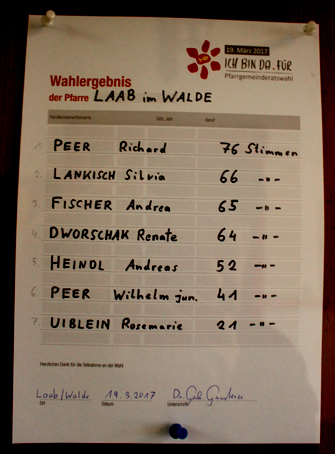 19. März 2017
ICH BIN DA. FÜR
Pfarrgemeinderatswahl
Wahlergebnis
der Pfarre LAAB im WALDE
Familienname/Vorname Geb. Jahr Beruf
1. PEER Richard 76 Stimmen
2. LANKISCH Silvia 66 -"-
3. FISCHER Andrea 65 -"-
4. DWORSCHAK Renate 64 -"-
5. HEINDL Andreas 52 -"-
6. PEER Wilhelm jun. 41 -"-
7. UIBLEIN Rosemarie 21 -"-
Herzlichen Dank für die Teilnahme an der Wahl
Laab/Walde 19.3.2017
Ort Datum Unterschrift